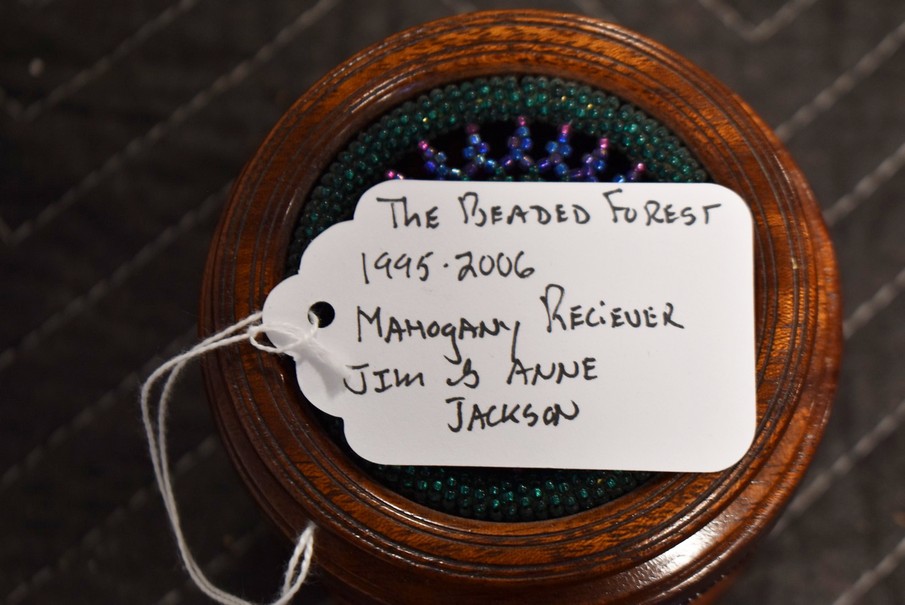 THE BEADED FOREST
1995-2006
MAHOGANY RECIEVER
JIM & ANNE
JACKSON